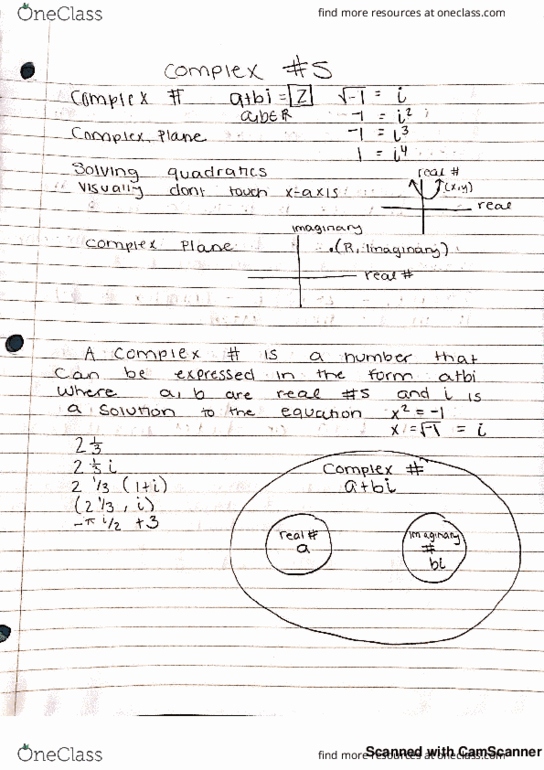 OneClass
find more resources at oneclass.com
Complex #s
Complex # a+bi = Z √-1 = i
a,bER -1 = i²
Complex Plane -1 = i³
1 = i⁴
Solving quadratics real #
visually dont touch x-axis (x,y)
real
imaginary
Complex Plane .(R, imaginary)
real #
A complex # is a number that
can be expressed in the form a+bi
where a, b are real #s and i is
a solution to the equation x² = -1
x = √-1 = i
2 1/3
2 1/3 i
2 1/3 (1+i)
(2 1/3, i)
-π i/2 + 3
Complex #
a+bi
real #
a
imaginary
#
bi
OneClass
find more resources at oneclass.com
Scanned with CamScanner